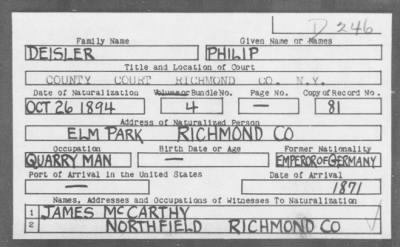 D 246
Family Name Given Name or Names
DEISLER PHILIP
Title and Location of Court
COUNTY COURT RICHMOND CO. N.Y.
Date of Naturalization Volume or Bundle No. Page No. Copy of Record No.
OCT 26 1894 4 — 81
Address of Naturalized Person
ELM PARK RICHMOND CO
Occupation Birth Date or Age Former Nationality
QUARRY MAN — EMPEROR OF GERMANY
Port of Arrival in the United States Date of Arrival
— 1871
Names, Addresses and Occupations of Witnesses To Naturalization
1 JAMES McCARTHY
2 NORTHFIELD RICHMOND CO